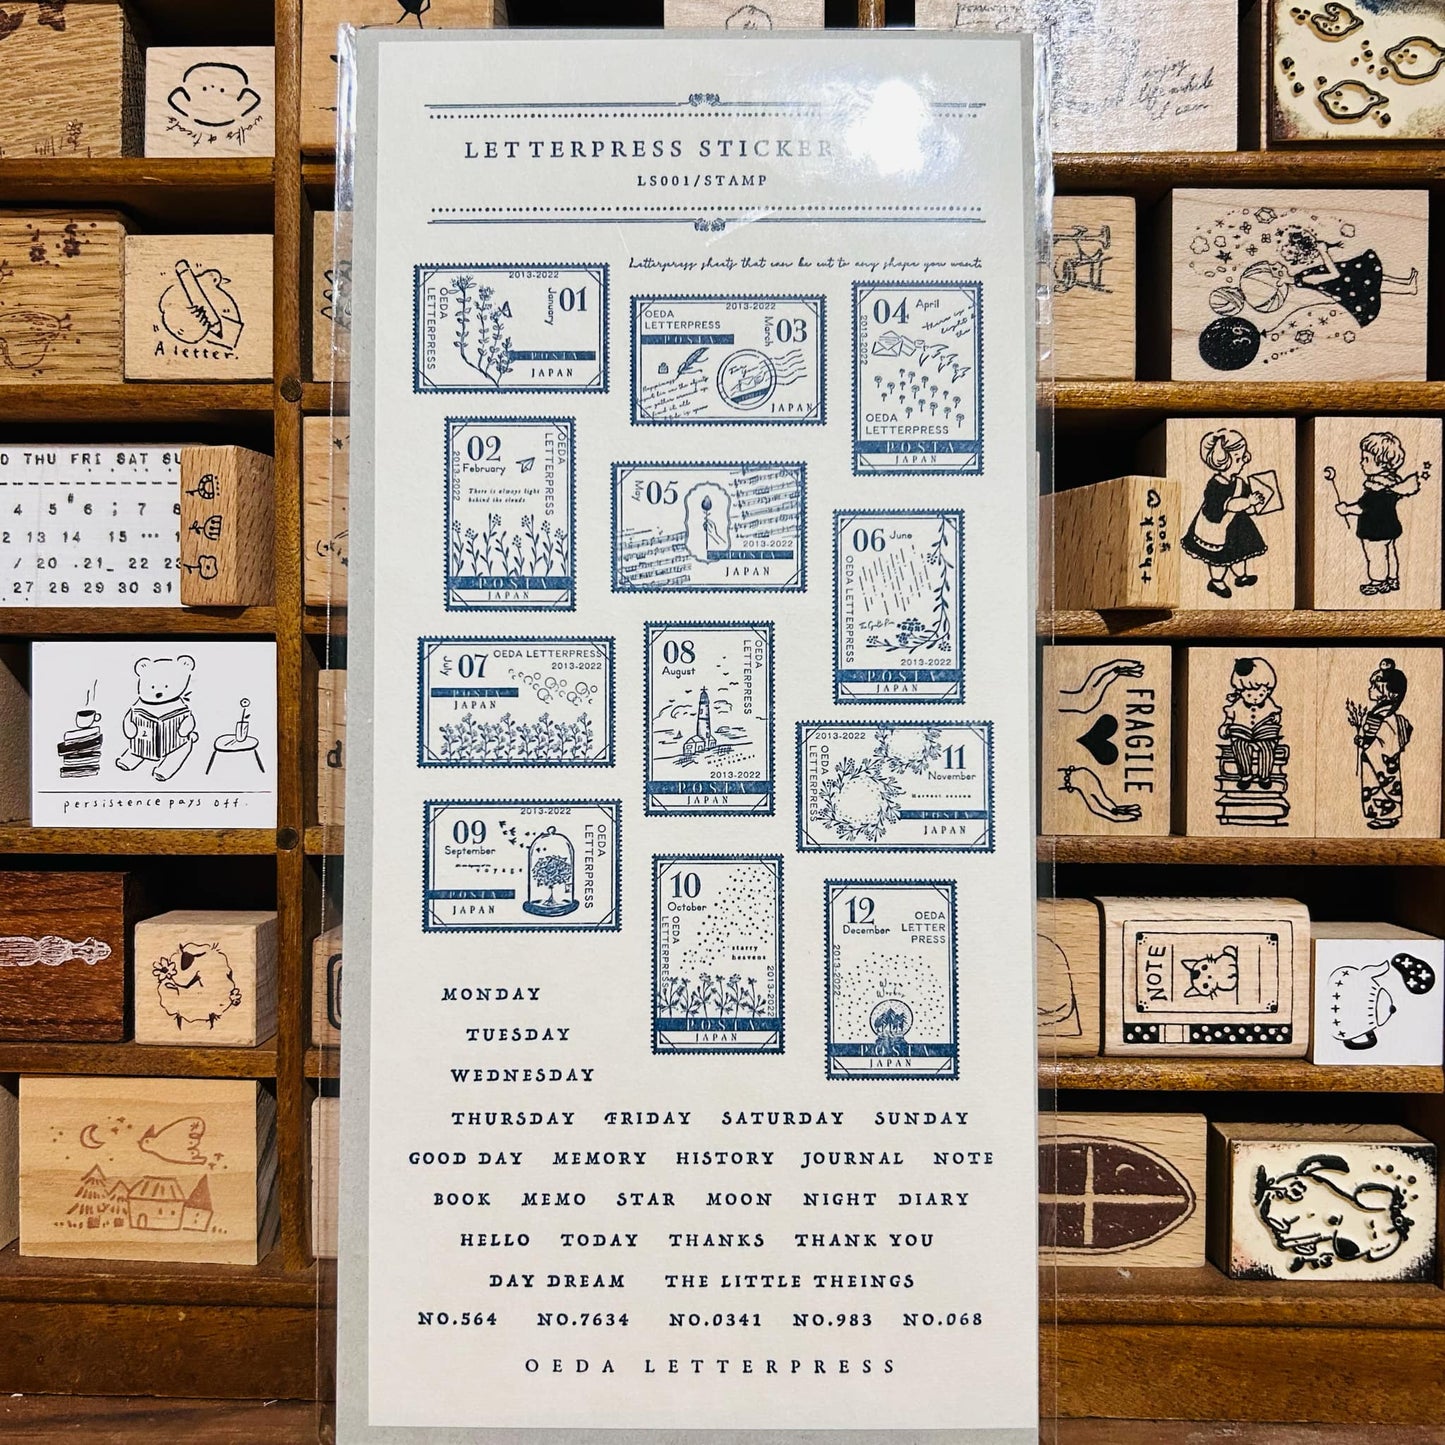 LETTERPRESS STICKER
LS001/STAMP
Letterpress sheets that can be cut to any shape you want.
2013-2022
OEDA LETTERPRESS
January
01
POSTA
JAPAN
OEDA
LETTERPRESS
2013-2022
March
03
POSTA
JAPAN
04
April
2013-2022
OEDA
LETTERPRESS
POSTA
JAPAN
02
February
2013-2022
OEDA LETTERPRESS
There is always light
behind the clouds
POSTA
JAPAN
May
05
2013-2022
POSTA
JAPAN
06
June
OEDA LETTERPRESS
2013-2022
POSTA
JAPAN
July
07
OEDA LETTERPRESS
2013-2022
POSTA
JAPAN
08
August
OEDA LETTERPRESS
2013-2022
POSTA
JAPAN
2013-2022
OEDA LETTERPRESS
11
November
Harvest season
POSTA
JAPAN
2013-2022
09
September
voyage
OEDA LETTERPRESS
POSTA
JAPAN
10
October
OEDA LETTERPRESS
starry
heavens
2013-2022
POSTA
JAPAN
12
December
OEDA
LETTER
PRESS
2013-2022
POSTA
JAPAN
MONDAY
TUESDAY
WEDNESDAY
THURSDAY FRIDAY SATURDAY SUNDAY
GOOD DAY MEMORY HISTORY JOURNAL NOTE
BOOK MEMO STAR MOON NIGHT DIARY
HELLO TODAY THANKS THANK YOU
DAY DREAM THE LITTLE THEINGS
NO.564 NO.7634 NO.0341 NO.983 NO.068
OEDA LETTERPRESS
walks & treats
"A letter."
THU FRI SAT
4 5 6 ; 7 8
12 13 14 15
/ 20 .21_ 22 23
27 28 29 30 31
persistence pays off.
enjoy
life while
I can
39
thank you
FRAGILE
NOTE